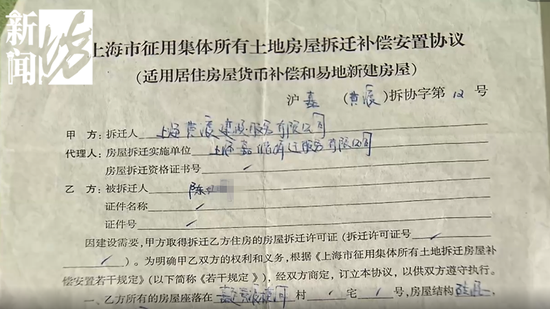 新闻坊
上海市征用集体所有土地房屋拆迁补偿安置协议
(适用居住房屋货币补偿和易地新建房屋)
沪 嘉 (黄渡) 拆协字第 12 号
甲 方：拆迁人 上海黄渡建设服务有限公司
代理人：房屋拆迁实施单位 上海嘉临拆迁服务有限公司
房屋拆迁资格证书号
乙 方：被拆迁人 陈
证件名称
证件号
因建设需要，甲方取得拆迁乙方住房的房屋拆迁许可证（拆迁许可证号
）。为明确甲乙双方的权利和义务，根据《上海市征用集体所有土地拆迁房屋补
偿安置若干规定》(以下简称《若干规定》)，经双方商定，订立本协议，以供双方遵守执行。
一、乙方所有的房屋座落在 村 宅 号，房屋结构